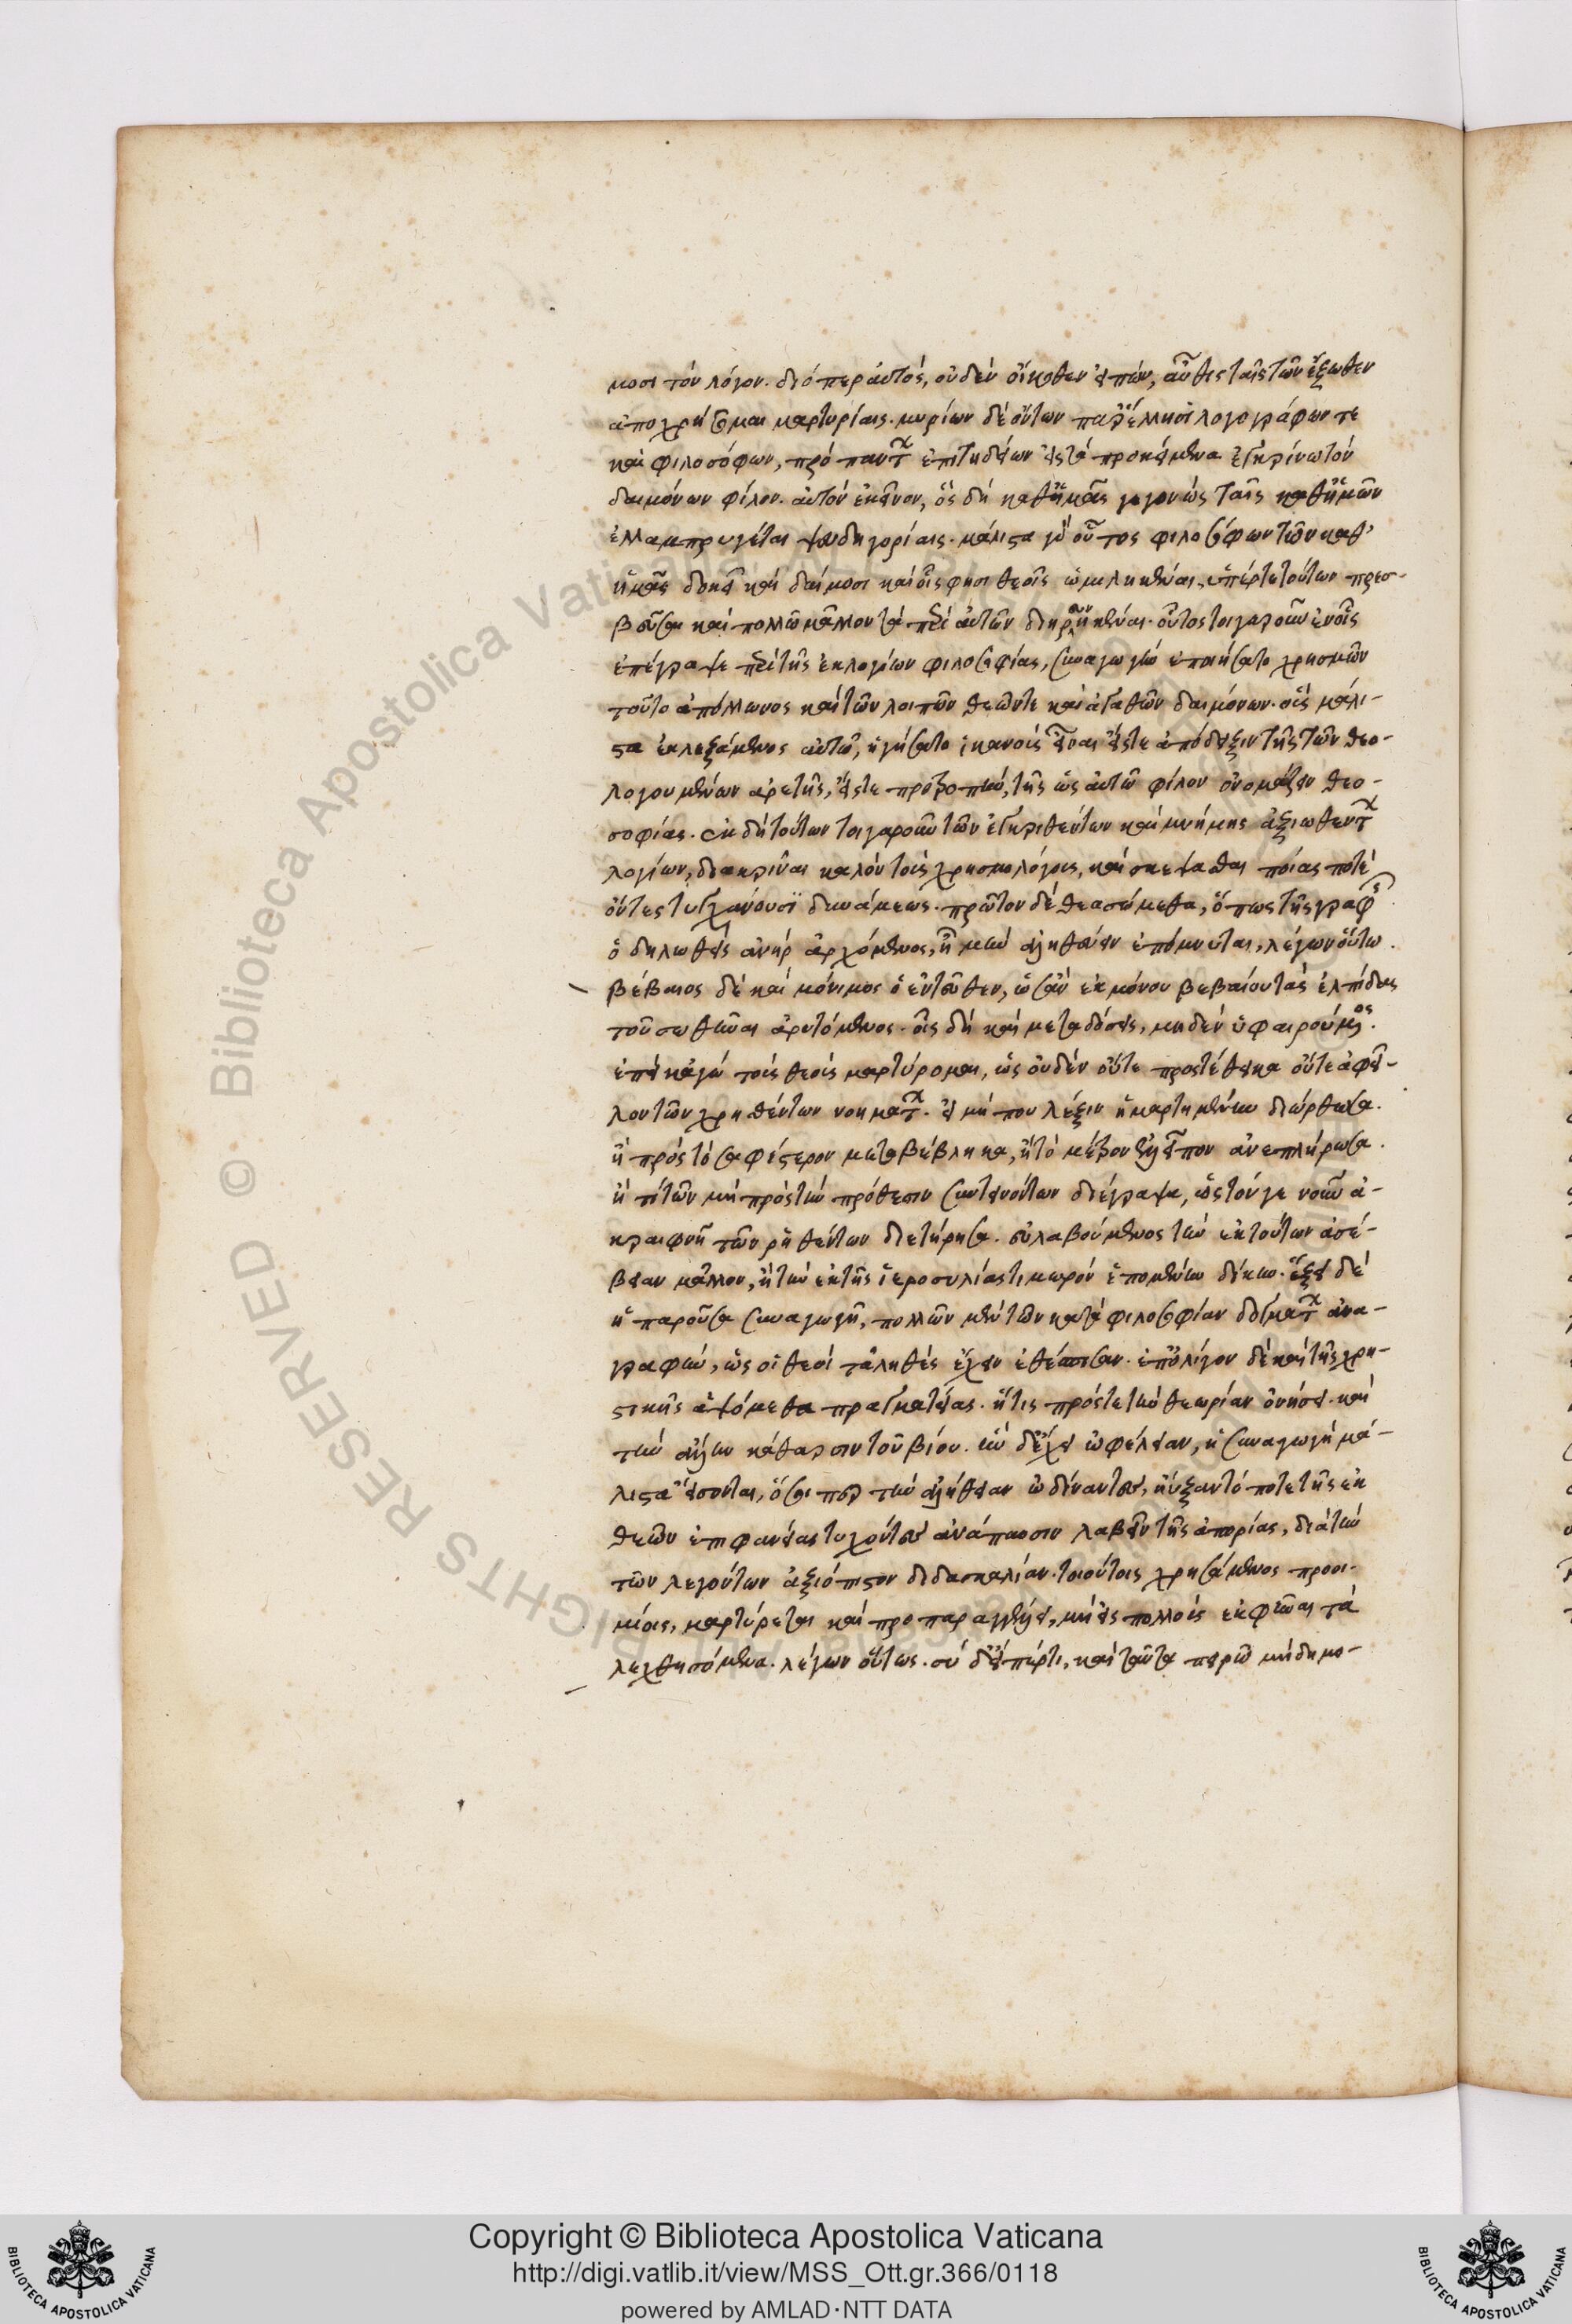 μοσι τὸν λόγον. διόπερ αὐτὸς, οὐδὲν οἴκοθεν εἰπὼν, αὖθις ταῖς τῶν ἔξωθεν
ἀποχρήσομαι μαρτυρίαις. μυρίων δὲ ὄντων παρ' ἕλλησι λογογράφων τε
καὶ φιλοσόφων, πρὸ παντὸς ἐπιτηδείων εἰς τὰ προκείμενα ἐγκρίνω τὸν
δαιμόνων φίλον. αὐτὸν ἐκεῖνον, ὃς δὴ καθ' ἡμᾶς γεγονὼς ταῖς καθ' ἡμῶν
ἐλλαμπρύνεται ψευδηγορίαις. μάλιστα γὰρ οὗτος φιλοσόφων τῶν καθ'
ἡμᾶς δοκεῖ καὶ δαίμοσι καὶ οἷς φησι θεοῖς ὡμιληκέναι, ὑπέρ τε τούτων πρεσ-
βεῦσαι καὶ πολλῶ μᾶλλον τὰ περὶ αὐτῶν διηρευνηκέναι. οὗτος τοιγαροῦν ἐν οἷς
ἐπέγραψε περὶ τῆς ἐκ λογίων φιλοσοφίας, συναγωγὴν ἐποιήσατο χρησμῶν
τοῦ τε ἀπόλλωνος καὶ τῶν λοιπῶν θεῶν τε καὶ ἀγαθῶν δαιμόνων. οὓς μάλι-
στα ἐκλεξάμενος αὐτῶ, ἡγήσατο ἱκανοὺς εἶναι εἴς τε ἀπόδειξιν τῆς τῶν θεο-
λογουμένων ἀρετῆς, εἴς τε προτροπὴν, τῆς ὡς αὐτῶ φίλον ὀνομάζειν θεο-
σοφίας. ἐκ δὴ τούτων τοιγαροῦν τῶν ἐγκριθέντων καὶ μνήμης ἀξιωθέντων
λογίων, διακρῖναι καλὸν τοὺς χρησμολόγους, καὶ σκέψασθαι ποίας ποτὲ
ὄντες τυγχάνουσϊ δυνάμεως. πρῶτον δὲ θεασώμεθα, ὅπως τῆς γραφῆς
ὁ δηλωθεὶς ἀνὴρ ἀρχόμενος, ἦ μὴν ἀληθεύειν ἐπόμνυται, λέγων οὕτω.
βέβαιος δὲ καὶ μόνιμος ὁ ἐντεῦθεν, ὡς ἂν ἐκ μόνου βεβαίου τὰς ἐλπίδας
τοῦ σωθῆναι ἀρυτόμενος. οἷς δὴ καὶ μεταδώσεις, μηδὲν ὑφαιρούμενος.
ἐπεὶ κἀγὼ τοὺς θεοὺς μαρτύρομαι, ὡς οὐδὲν οὔτε προστέθεικα οὔτε ἀφεῖ-
λον τῶν χρησθέντων νοημάτων. εἰ μή που λέξιν ἡμαρτημένην διώρθωσα.
ἢ πρὸς τὸ σαφέστερον μεταβέβληκα, ἢ τὸ μέτρον ἐλλεῖπον ἀνεπλήρωσα.
ἤ τι τῶν μὴ πρὸς τὴν πρόθεσιν συντεινόντων διέγραψα, ὡς τόν γε νοῦν ἀ-
κραιφνῆ τῶν ῥηθέντων διετήρησα. εὐλαβούμενος τὴν ἐκ τούτων ἀσέ-
βειαν μᾶλλον, ἢ τὴν ἐκ τῆς ἱεροσυλίας τιμωρὸν ἑπομένην δίκην. ἕξει δὲ
ἡ παροῦσα συναγωγὴ, πολλῶν μὲν τῶν κατὰ φιλοσοφίαν δογμάτων ἀνα-
γραφὴν, ὡς οἱ θεοὶ τἀληθὲς ἔχειν ἐθέσπισαν. ἐπ' ὀλίγον δὲ καὶ τῆς χρη-
στικῆς ἁψόμεθα πραγματείας. ἥτις πρός τε τὴν θεωρίαν ὀνήσει. καὶ
τὴν ἄλλην κάθαρσιν τοῦ βίου. ἣν δ' ἔχει ὠφέλειαν, ἡ συναγωγὴ μά-
λιστα εἴσονται, ὅσοι περ τὴν ἀλήθειαν ὠδίναντες, ηὔξαντό ποτε τῆς ἐκ
θεῶν ἐπιφανείας τυχόντες ἀνάπαυσιν λαβεῖν τῆς ἀπορίας, διὰ τὴν
τῶν λεγόντων ἀξιόπιστον διδασκαλίαν. τοιούτοις χρησάμενος προοι-
μίοις, μαρτύρεται καὶ προπαραγγέλλει, μὴ εἰς πολλοὺς ἐκφῆναι τὰ
λεχθησόμενα. λέγων οὕτως. σὺ δ' εἴπέρ τι, καὶ ταῦτα πειρῶ μὴ δημο-
© Biblioteca Apostolica Vaticana
ALL RIGHTS RESERVED
Copyright © Biblioteca Apostolica Vaticana
http://digi.vatlib.it/view/MSS_Ott.gr.366/0118
powered by AMLAD·NTT DATA
BIBLIOTECA APOSTOLICA VATICANA
BIBLIOTECA APOSTOLICA VATICANA